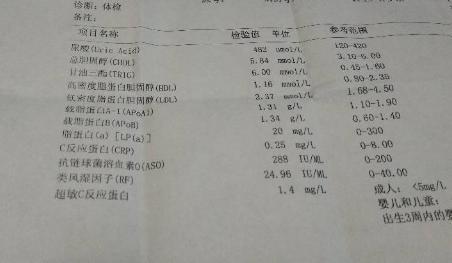 诊断: 体检
备注:
项目名称 检验值 单位 参考范围
尿酸(Uric Acid) 482 umol/L 120-420
总胆固醇(CHOL) 5.84 mmol/L 3.10-6.00
甘油三酯(TRIG) 6.00 mmol/L 0.45-1.60
高密度脂蛋白胆固醇(HDL) 1.16 mmol/L 0.80-2.35
低密度脂蛋白胆固醇(LDL) 2.37 mmol/L 1.68-4.50
载脂蛋白A-1(APoA1) 1.31 g/L 1.10-1.90
载脂蛋白B(APoB) 1.34 g/L 0.60-1.40
脂蛋白(a) [LP(a)] 20 mg/L 0-300
C反应蛋白(CRP) 0.25 mg/L 0-8.00
抗链球菌溶血素O(ASO) 288 IU/ML 0-200
类风湿因子(RF) 24.96 IU/ML 0-40.00
超敏C反应蛋白 1.4 mg/L 成人: <5mg/L
婴儿和儿童:
出生3周内的婴